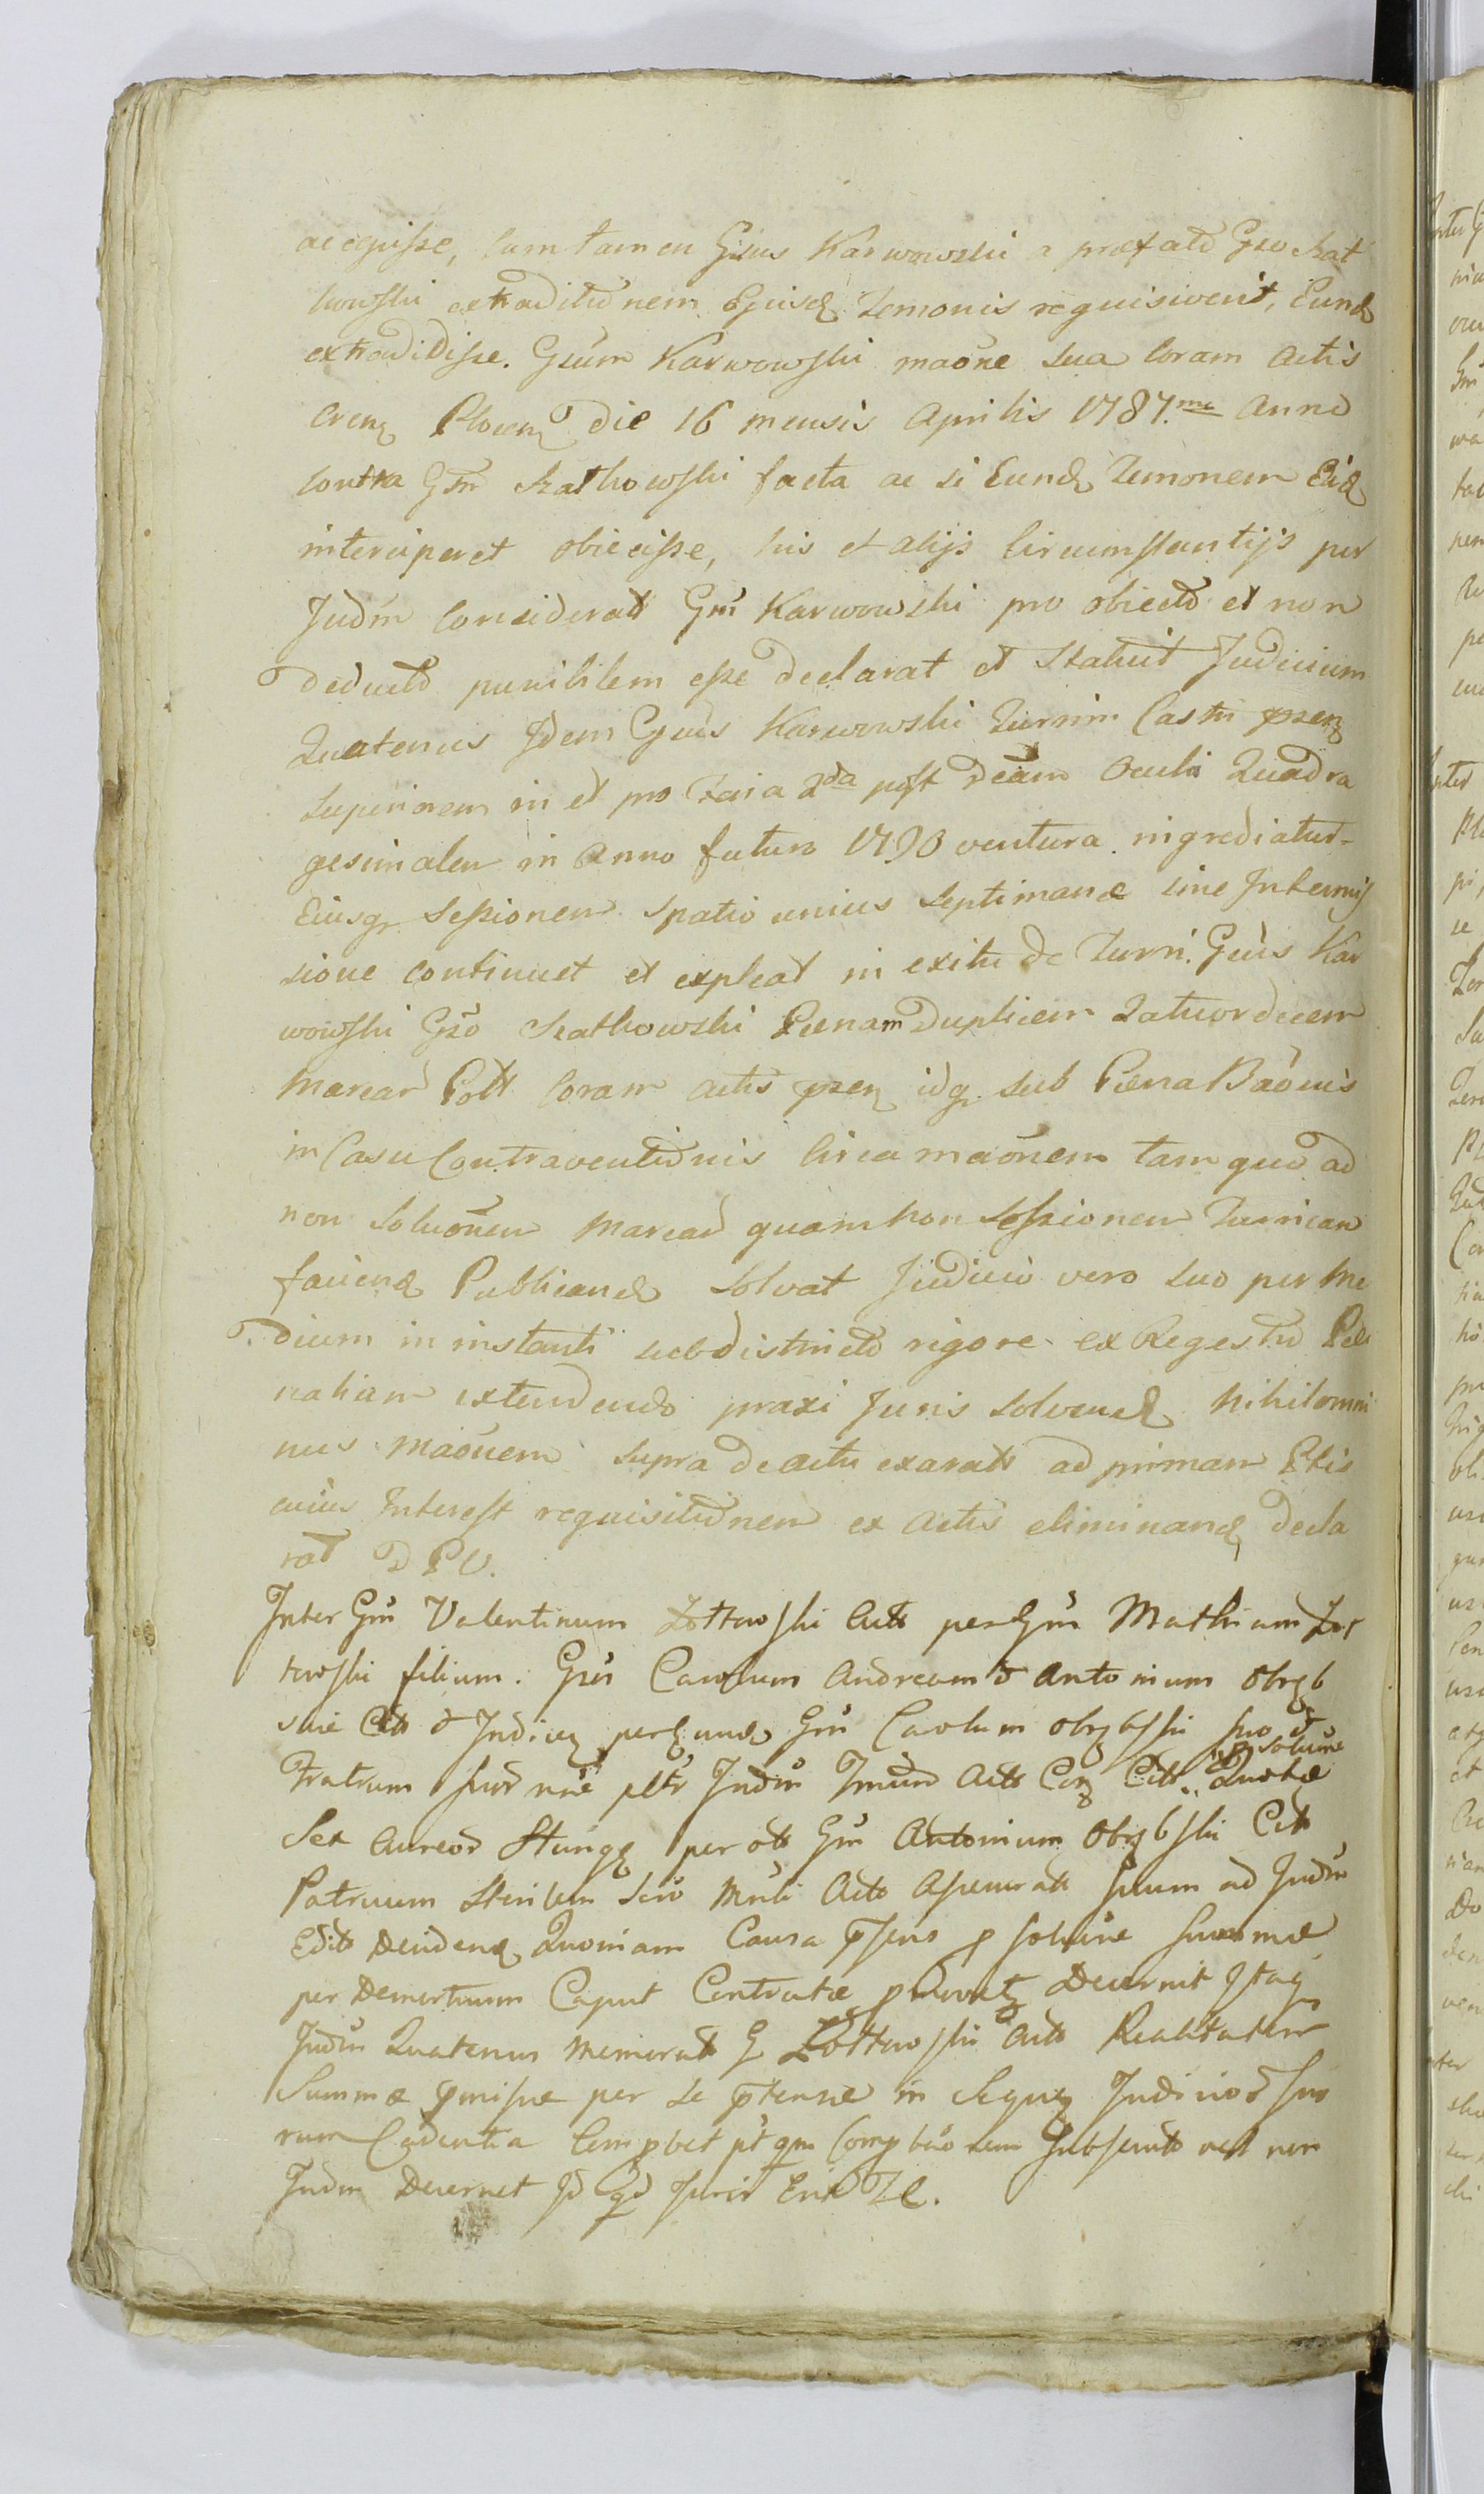 accepisse, cum tamen Gsus Karwowski a præfato Gso Skat
kowski extraditionem Ejusd Temonis requisiverit, Eund
extradidisse. Gsum Karwowski maõne sua coram Actis
Crenz Plocenz die 16 mensis Aprilis 1787.mo Anno
contra Gsm Skatkowski facta ac si Eund Temonem Eid
interciperet obiecisse, his et alijs Circumstantijs per
Judm considerat Gm Karwowski pro obiecto et non
deducto punibilem esse declarat et statuit Judicium
Quatenus Idem Gsus Karwowski Turrim Castri præz
superiorem in et pro Feria 2da post Deam Oculi Quadra
gesimalem in Anno futuro 1790 ventura ingrediatur
Eiusq sessionem spatio unius septimanæ sine Intermis
sione continuet et expleat in exitu de Turri Gsus Kar
wowski Gso Skatkowski Pænam Duplicem Quatuordecem
Marcar Poll coram Actis præz idq sub Pæna Bãonis
in Casu Contraventionis circa mãonem tam quo ad
non soluõnem Marcar quam non sessionem Turrican
faciend Publicand solvat Judicio vero suo per me
dium in instanti sub districto rigore ex Regestro Pæ
nalium extendendo praxi Juris solvend nihilomi
nus Mãonem supra de actu exarat ad primam Ptis
cuius Interest requisitionem ex Actis eliminand decla
rat D P U.
Inter Gm Valentinum Zottowski Actt per Gm Mathiam Zot
towski filium. Gsm Carolum Andream & Antonium Obręb
skie Citt & Indicz per Eund Gm Carolum Obrębski suo &
Fratrum suor nõe pltr Judm Terrum Actt Cez Citt. Quotæ
p solutione
Sex Aureor Hungq per ott Gm Antonium Obrębski Citt
Patruum Sterilem Scrõ Mnli Acto Assecuratt suum ad Judm
Edito Deidend Quoniam Causa psens p solutione summæ
per Demortuum Caput Contractæ Decernit Itaq
Judm Quatenus Memoratt G Zottowski Actt Realitatem
Summæ pmissæ per se ptensæ in sequz Judicior suo
rum Cadentia Compbet pt qm Compbãone Subsecuta vel non
Judm Decernet Id Qd Juris Erit Te.